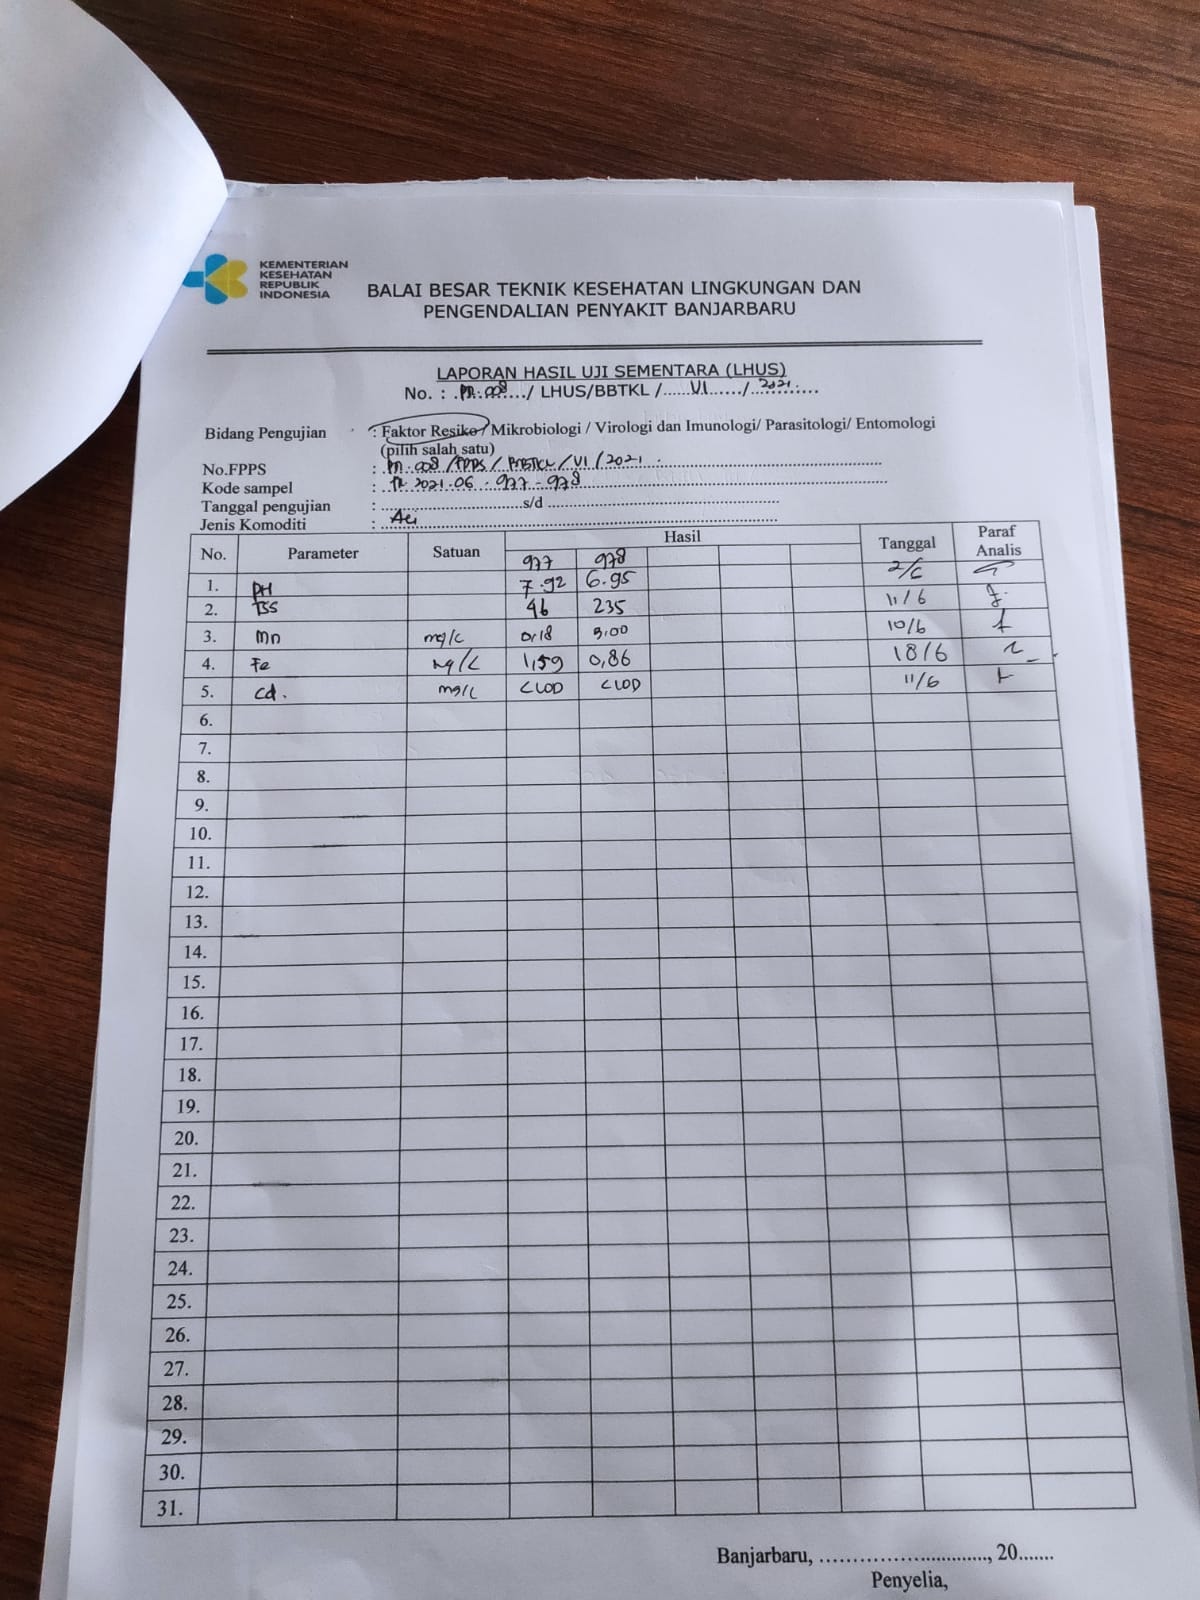 KEMENTERIAN
KESEHATAN
REPUBLIK
INDONESIA
BALAI BESAR TEKNIK KESEHATAN LINGKUNGAN DAN
PENGENDALIAN PENYAKIT BANJARBARU
LAPORAN HASIL UJI SEMENTARA (LHUS)
No. : .PM.008.../ LHUS/BBTKL /......VI....../..2021......
Bidang Pengujian : Faktor Resiko / Mikrobiologi / Virologi dan Imunologi/ Parasitologi/ Entomologi
(pilih salah satu)
No.FPPS : 008/FPPS/BBTKL/VI/2021
Kode sampel : 2021.06.977-978
Tanggal pengujian : ........................s/d ........................
Jenis Komoditi : Air
No. Parameter Satuan Hasil Tanggal Paraf Analis
977 978
1. pH 7.92 6.95 2/6
2. TSS 46 235 11/6
3. Mn mg/L 0,18 3,00 10/6
4. Fe mg/L 1,59 0,86 18/6
5. Cd. mg/L <LOD <LOD 11/6
6.
7.
8.
9.
10.
11.
12.
13.
14.
15.
16.
17.
18.
19.
20.
21.
22.
23.
24.
25.
26.
27.
28.
29.
30.
31.
Banjarbaru, ............................, 20.......
Penyelia,